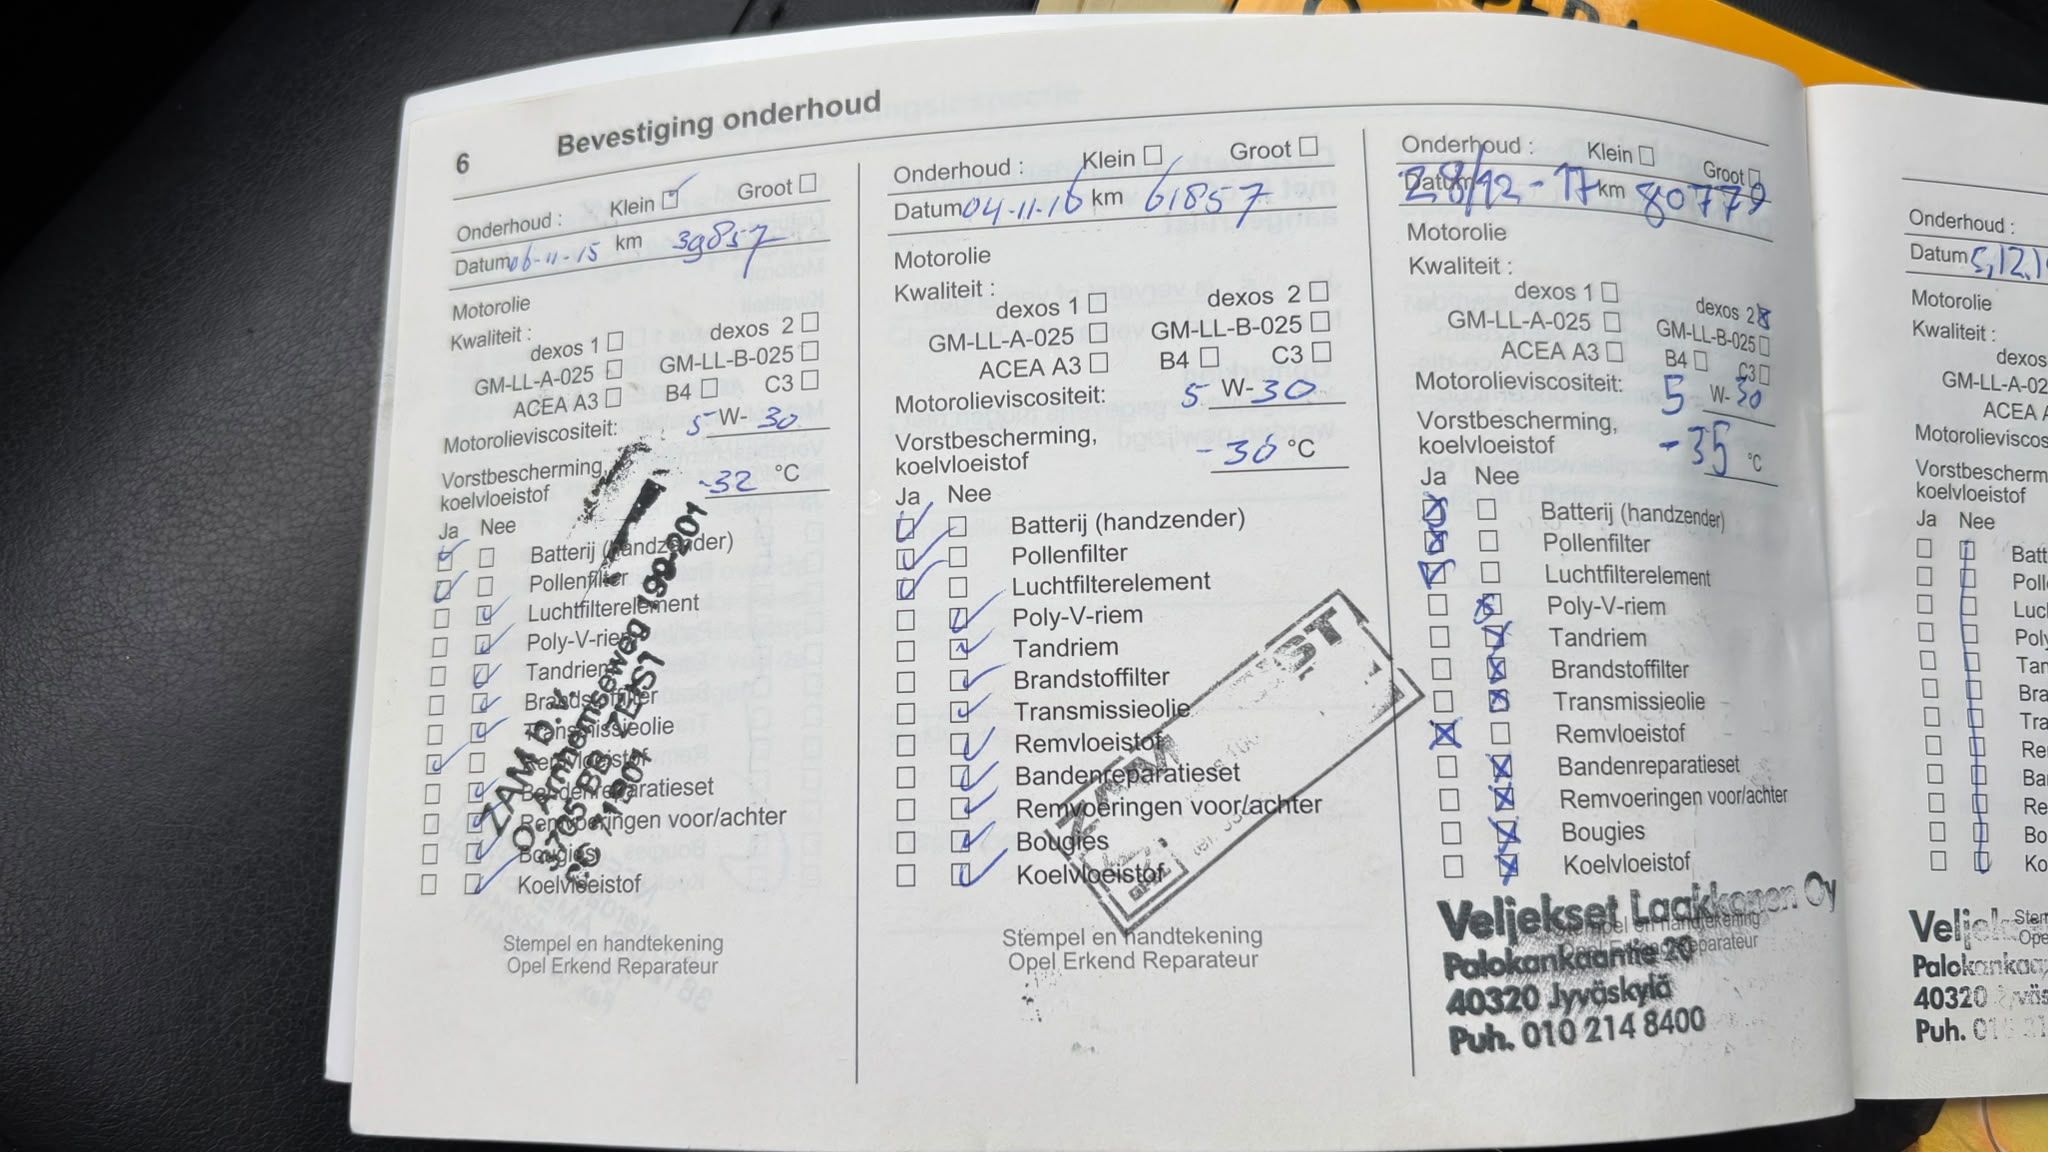 6 Bevestiging onderhoud
Onderhoud : Klein Groot
Datum 06-11-15 km 39857
Motorolie
Kwaliteit :
dexos 1 dexos 2
GM-LL-A-025 GM-LL-B-025
ACEA A3 B4 C3
Motorolieviscositeit: 5 W-30
Vorstbescherming,
koelvloeistof -32 °C
Ja Nee
Batterij (handzender)
Pollenfilter
Luchtfilterelement
Poly-V-riem
Tandriem
Brandstoffilter
Transmissieolie
Remvloeistof
Bandenreparatieset
Remvoeringen voor/achter
Bougies
Koelvloeistof
ZAM B.V.
Arnhemseweg 199-201
3705 BB ZEIST
Stempel en handtekening
Opel Erkend Reparateur
Onderhoud : Klein Groot
Datum 04-11-16 km 61857
Motorolie
Kwaliteit :
dexos 1 dexos 2
GM-LL-A-025 GM-LL-B-025
ACEA A3 B4 C3
Motorolieviscositeit: 5 W-30
Vorstbescherming,
koelvloeistof -36 °C
Ja Nee
Batterij (handzender)
Pollenfilter
Luchtfilterelement
Poly-V-riem
Tandriem
Brandstoffilter
Transmissieolie
Remvloeistof
Bandenreparatieset
Remvoeringen voor/achter
Bougies
Koelvloeistof
OPEL
Stempel en handtekening
Opel Erkend Reparateur
Onderhoud : Klein Groot
Datum 28/12-17 km 80779
Motorolie
Kwaliteit :
dexos 1 dexos 2
GM-LL-A-025 GM-LL-B-025
ACEA A3 B4 C3
Motorolieviscositeit: 5 W-30
Vorstbescherming,
koelvloeistof -35 °C
Ja Nee
Batterij (handzender)
Pollenfilter
Luchtfilterelement
Poly-V-riem
Tandriem
Brandstoffilter
Transmissieolie
Remvloeistof
Bandenreparatieset
Remvoeringen voor/achter
Bougies
Koelvloeistof
Stempel en handtekening
Opel Erkend Reparateur
Veljekset Laakkonen Oy
Palokankaantie 20
40320 Jyväskylä
Puh. 010 214 8400
Onderhoud :
Datum 5,12,1
Motorolie
Kwaliteit :
dexos
GM-LL-A-02
ACEA A
Motorolieviscos
Vorstbescherm
koelvloeistof
Ja Nee
Batt
Polle
Luc
Poly
Tan
Bra
Tra
Re
Ba
Re
Bo
Ko
Stem
Ope
Velj
Palokankaa
40320
Puh.